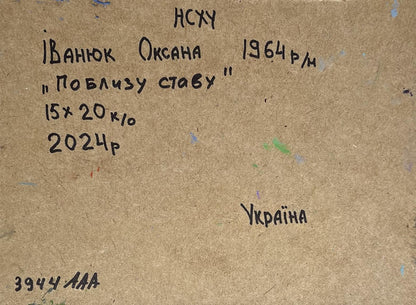 НСХУ
Іванюк Оксана 1964 р/н
„Поблизу ставу"
15х20 к/о
2024р
Україна
3944 ААА